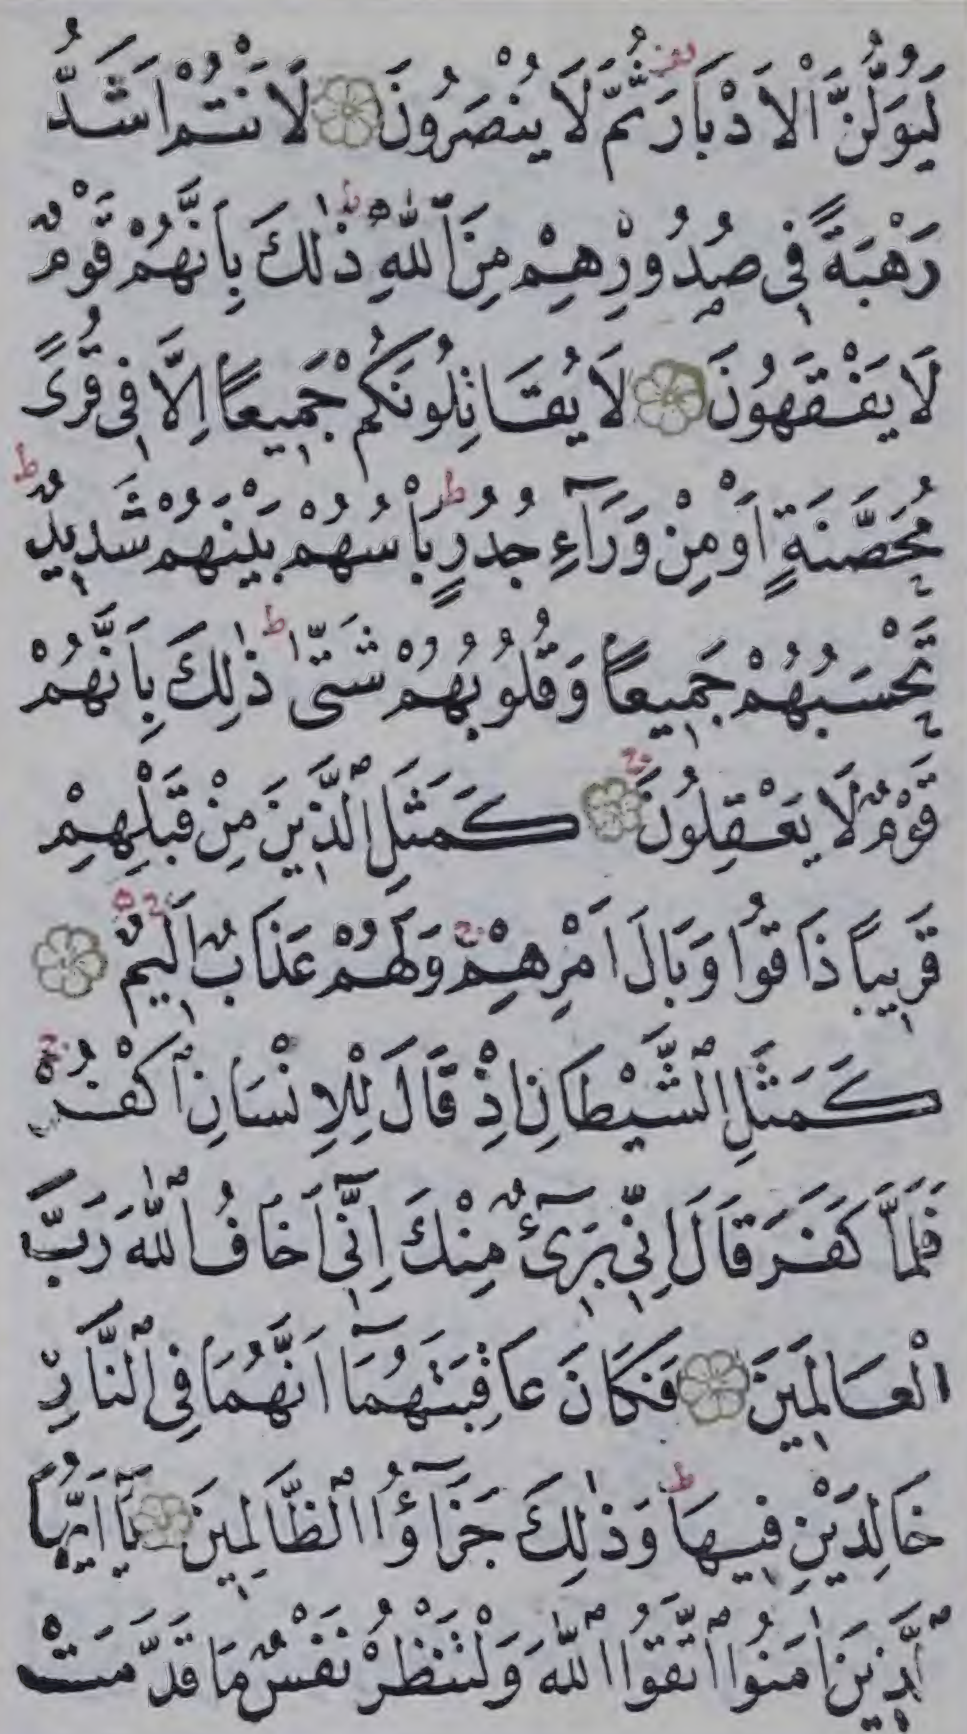 لَيُوَلُّنَّ الْاَدْبَارَ ثُمَّ لَا يُنْصَرُونَ لَاَنْتُمْ اَشَدُّ
رَهْبَةً فِي صُدُورِهِمْ مِنَ ٱللّٰهِ ذٰلِكَ بِاَنَّهُمْ قَوْمٌ
لَا يَفْقَهُونَ لَا يُقَاتِلُونَكُمْ جَمِيعًا اِلَّا فِي قُرًى
مُحَصَّنَةٍ اَوْ مِنْ وَرَآءِ جُدُرٍ بَاْسُهُمْ بَيْنَهُمْ شَدِيدٌ
تَحْسَبُهُمْ جَمِيعًا وَقُلُوبُهُمْ شَتّٰى ذٰلِكَ بِاَنَّهُمْ
قَوْمٌ لَا يَعْقِلُونَ كَمَثَلِ ٱلَّذِينَ مِنْ قَبْلِهِمْ
قَرِيبًا ذَاقُوا وَبَالَ اَمْرِهِمْ وَلَهُمْ عَذَابٌ اَلِيمٌ
كَمَثَلِ ٱلشَّيْطَانِ اِذْ قَالَ لِلْاِنْسَانِ ٱكْفُرْ
فَلَمَّا كَفَرَ قَالَ اِنِّي بَرِٓىءٌ مِنْكَ اِنِّٓي اَخَافُ ٱللّٰهَ رَبَّ
الْعَالَمِينَ فَكَانَ عَاقِبَتَهُمَٓا اَنَّهُمَا فِي ٱلنَّارِ
خَالِدَيْنِ فِيهَا وَذٰلِكَ جَزَٓاؤُا ٱلظَّالِمِينَ يَٓا اَيُّهَا
ٱلَّذِينَ اٰمَنُوا ٱتَّقُوا ٱللّٰهَ وَلْتَنْظُرْ نَفْسٌ مَا قَدَّمَتْ